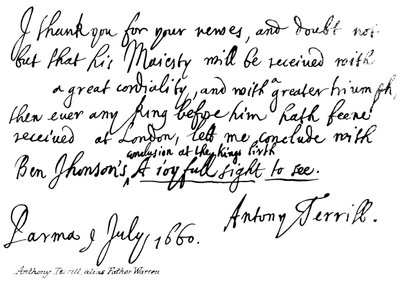 I thank you for your newes, and doubt not
but that his Maiesty will be received with
a great cordiality, and with a greater triumph,
then ever any king before him hath feene
receiv'd at London, lett me conclude with
Ben Jhonson's conclusion at the kings birth A ioyfull sight to see.
Antony Terrill.
Parma 9 July 1660.
Anthony Terrill, alias Father Warren